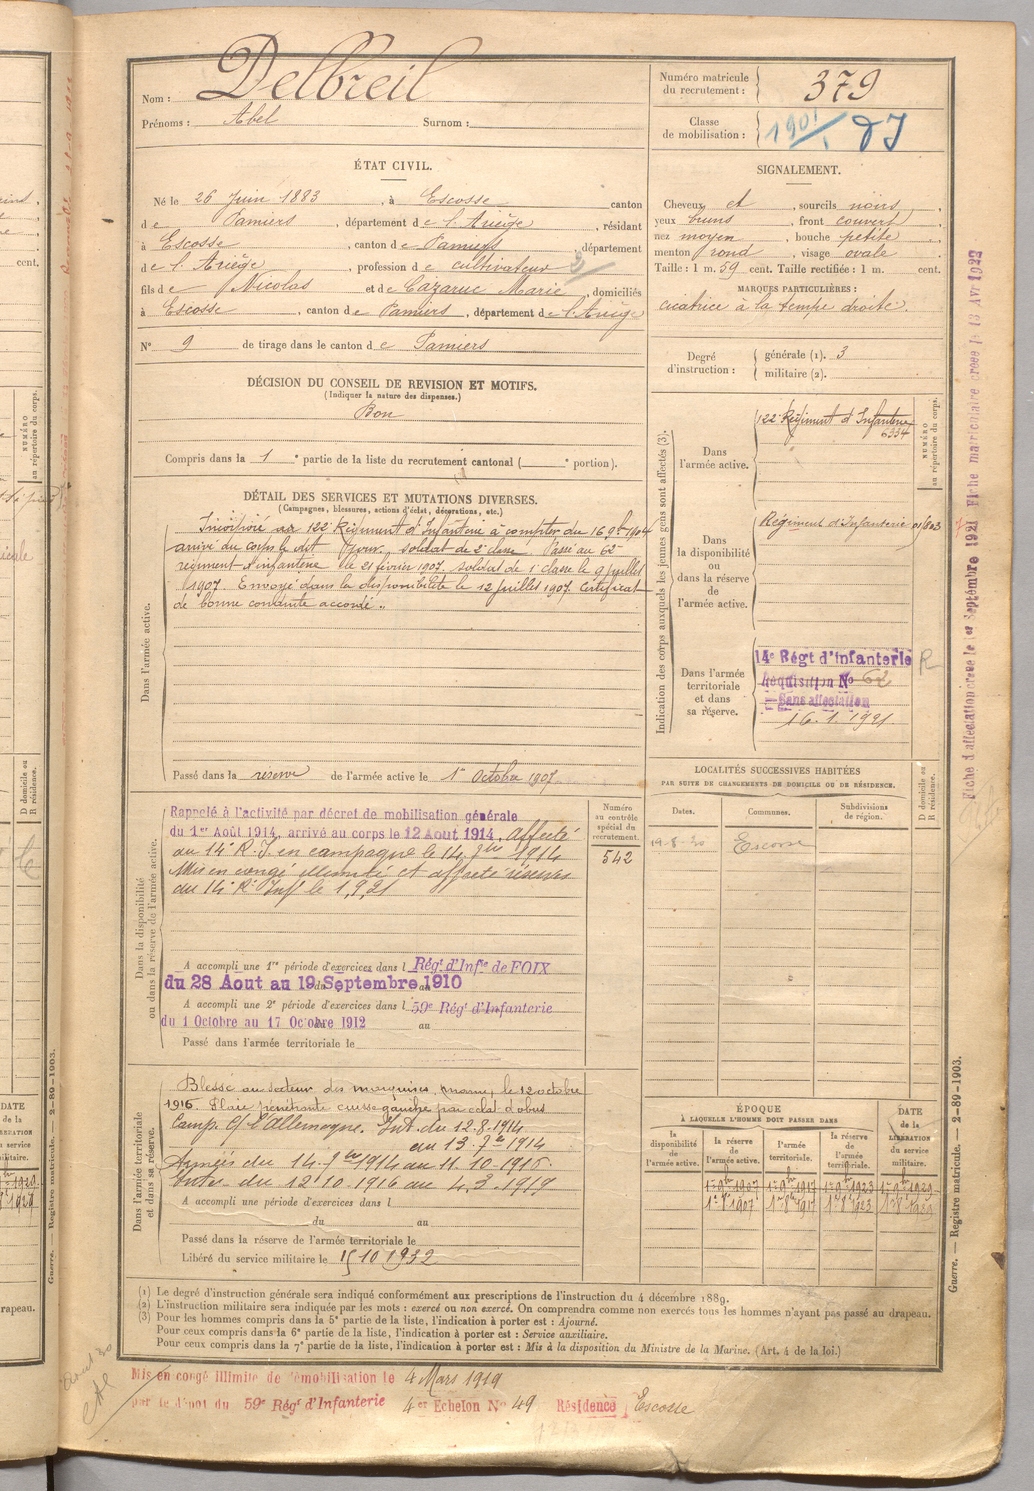 Nom : Delbreil
Prénoms : Abel Surnom :
Numéro matricule du recrutement : 379
Classe de mobilisation : 1901
ÉTAT CIVIL.
Né le 26 Juin 1883, à Escosse canton
de Pamiers, département de l'Ariège, résidant
à Escosse, canton de Pamiers, département
de l'Ariège, profession de cultivateur
fils de Nicolas et de Cazarue Marie, domiciliés
à Escosse, canton de Pamiers, département de l'Ariège
N° 9 de tirage dans le canton de Pamiers
SIGNALEMENT.
Cheveux et, sourcils noirs,
yeux bruns, front couvert,
nez moyen, bouche petite,
menton rond, visage ovale
Taille : 1 m. 59 cent. Taille rectifiée : 1 m. cent.
MARQUES PARTICULIÈRES :
cicatrice à la tempe droite.
Degré d'instruction : générale (1). 3
militaire (2).
DÉCISION DU CONSEIL DE REVISION ET MOTIFS.
(Indiquer la nature des dispenses.)
Bon
Compris dans la 1e partie de la liste du recrutement cantonal ( e portion).
DÉTAIL DES SERVICES ET MUTATIONS DIVERSES.
(Campagnes, blessures, actions d'éclat, décorations, etc.)
Dans l'armée active.
Incorporé au 122e Régiment d'Infanterie à compter du 16 9bre 1904
arrivé au corps le dit jour, soldat de 2e classe. Passé au 62e
régiment d'infanterie le 21 février 1907. soldat de 1e classe le 9 juillet
1907. Envoyé dans la disponibilité le 12 juillet 1907. Certificat
de bonne conduite accordé.
Passé dans la réserve de l'armée active le 1er Octobre 1907
Indication des corps auxquels les jeunes gens sont affectés (3).
NUMÉRO au répertoire du corps.
Dans l'armée active.
122e Régiment d'Infanterie
6334
Dans la disponibilité ou dans la réserve de l'armée active.
Régiment d'Infanterie
Dans l'armée territoriale et dans sa réserve.
14e Régt d'Infanterie R
Sans affectation
16.1.1921
LOCALITÉS SUCCESSIVES HABITÉES
PAR SUITE DE CHANGEMENTS DE DOMICILE OU DE RÉSIDENCE.
D domicile ou R résidence.
Dates. Communes. Subdivisions de région.
19-8-20 Escosse
Dans la disponibilité ou dans la réserve de l'armée active.
Numéro au contrôle spécial du recrutement.
542
Rappelé à l'activité par décret de mobilisation générale
du 1er Août 1914, arrivé au corps le 12 Aout 1914, affecté
au 14e R.I. en campagne le 14 7bre 1914
Mis en congé illimité et affecté réserves
du 14e Rt Inf le 1.9.21
A accompli une 1re période d'exercices dans l Régt d'Infie de FOIX
du 28 Aout au 19 Septembre 1910
A accompli une 2e période d'exercices dans l 59e Régt d'Infanterie
du 1 Octobre au 17 Octobre 1912 au
Passé dans l'armée territoriale le
Dans l'armée territoriale et dans sa réserve.
Blessé au secteur des marquises, marne, le 12 octobre
1916. Plaie pénétrante cuisse gauche par éclat d'obus
Camp. c/ l'Allemagne. Int. du 12.8.1914
au 13.7bre 1914
Armées du 14.7bre 1914 au 11.10.1916.
Inter. du 12 10.1916 au 4.3.1919
A accompli une période d'exercices dans l
du au
Passé dans la réserve de l'armée territoriale le
Libéré du service militaire le 15 10 1932
ÉPOQUE
À LAQUELLE L'HOMME DOIT PASSER DANS
la disponibilité de l'armée active.
la réserve de l'armée active.
l'armée territoriale.
la réserve de l'armée territoriale.
DATE de la LIBÉRATION du service militaire.
1er 9bre 1907 1er 9bre 1917 1er 9bre 1923 1er 9bre 1929
1er 8bre 1907 1er 8bre 1917 1er 8bre 1923 1er 8bre 1929
(1) Le degré d'instruction générale sera indiqué conformément aux prescriptions de l'instruction du 4 décembre 1889.
(2) L'instruction militaire sera indiquée par les mots : exercé ou non exercé. On comprendra comme non exercés tous les hommes n'ayant pas passé au drapeau.
(3) Pour les hommes compris dans la 5e partie de la liste, l'indication à porter est : Ajourné.
Pour ceux compris dans la 6e partie de la liste, l'indication à porter est : Service auxiliaire.
Pour ceux compris dans la 7e partie de la liste, l'indication à porter est : Mis à la disposition du Ministre de la Marine. (Art. 4 de la loi.)
Mis en congé illimité de démobilisation le 4 Mars 1919
par le dépot du 59e Régt d'Infanterie 4er Echelon N° 49 Résidence Escosse
Guerre. — Registre matricule. — 2-89-1903.
Fiche d'affectation créée le 1er Septembre 1921 Fiche matriculaire créée le 13 Avr 1922